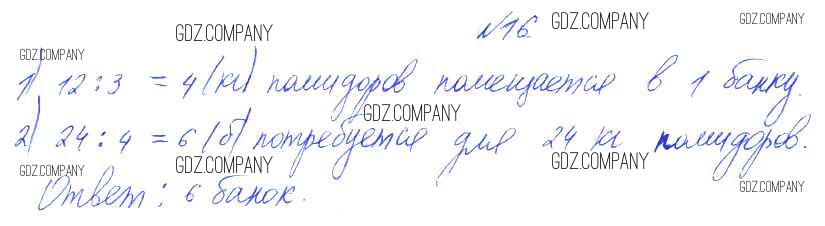 №16.
1) 12 : 3 = 4 (кг) помидоров помещается в 1 банку.
2) 24 : 4 = 6 (б) потребуется для 24 кг помидоров.
Ответ: 6 банок.
GDZ.COMPANY
GDZ.COMPANY
GDZ.COMPANY
GDZ.COMPANY
GDZ.COMPANY
GDZ.COMPANY
GDZ.COMPANY
GDZ.COMPANY
GDZ.COMPANY